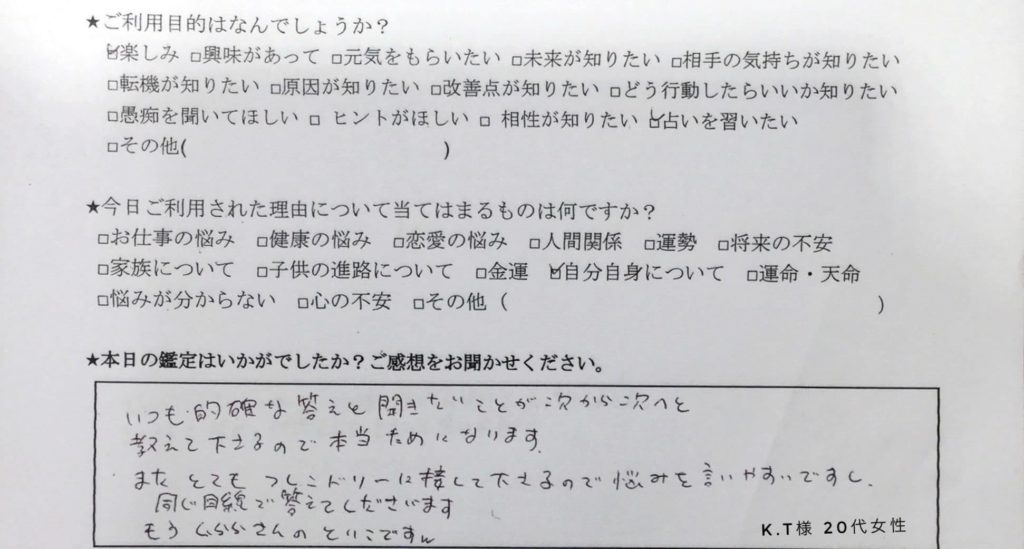 ★ご利用目的はなんでしょうか？
☑楽しみ □興味があって □元気をもらいたい □未来が知りたい □相手の気持ちが知りたい
□転機が知りたい □原因が知りたい □改善点が知りたい □どう行動したらいいか知りたい
□愚痴を聞いてほしい □ ヒントがほしい □ 相性が知りたい ☑占いを習いたい
□その他( )
★今日ご利用された理由について当てはまるものは何ですか？
□お仕事の悩み □健康の悩み □恋愛の悩み □人間関係 □運勢 □将来の不安
□家族について □子供の進路について □金運 ☑自分自身について □運命・天命
□悩みが分からない □心の不安 □その他 ( )
★本日の鑑定はいかがでしたか？ご感想をお聞かせください。
いつも的確な答えと聞きたいことが次から次へと
教えて下さるので本当ためになります.
またとてもフレンドリーに接して下さるので悩みを言いやすいですし、
同じ目線で答えてくださいます
もう さんのとりこですw
K.T様 20代女性